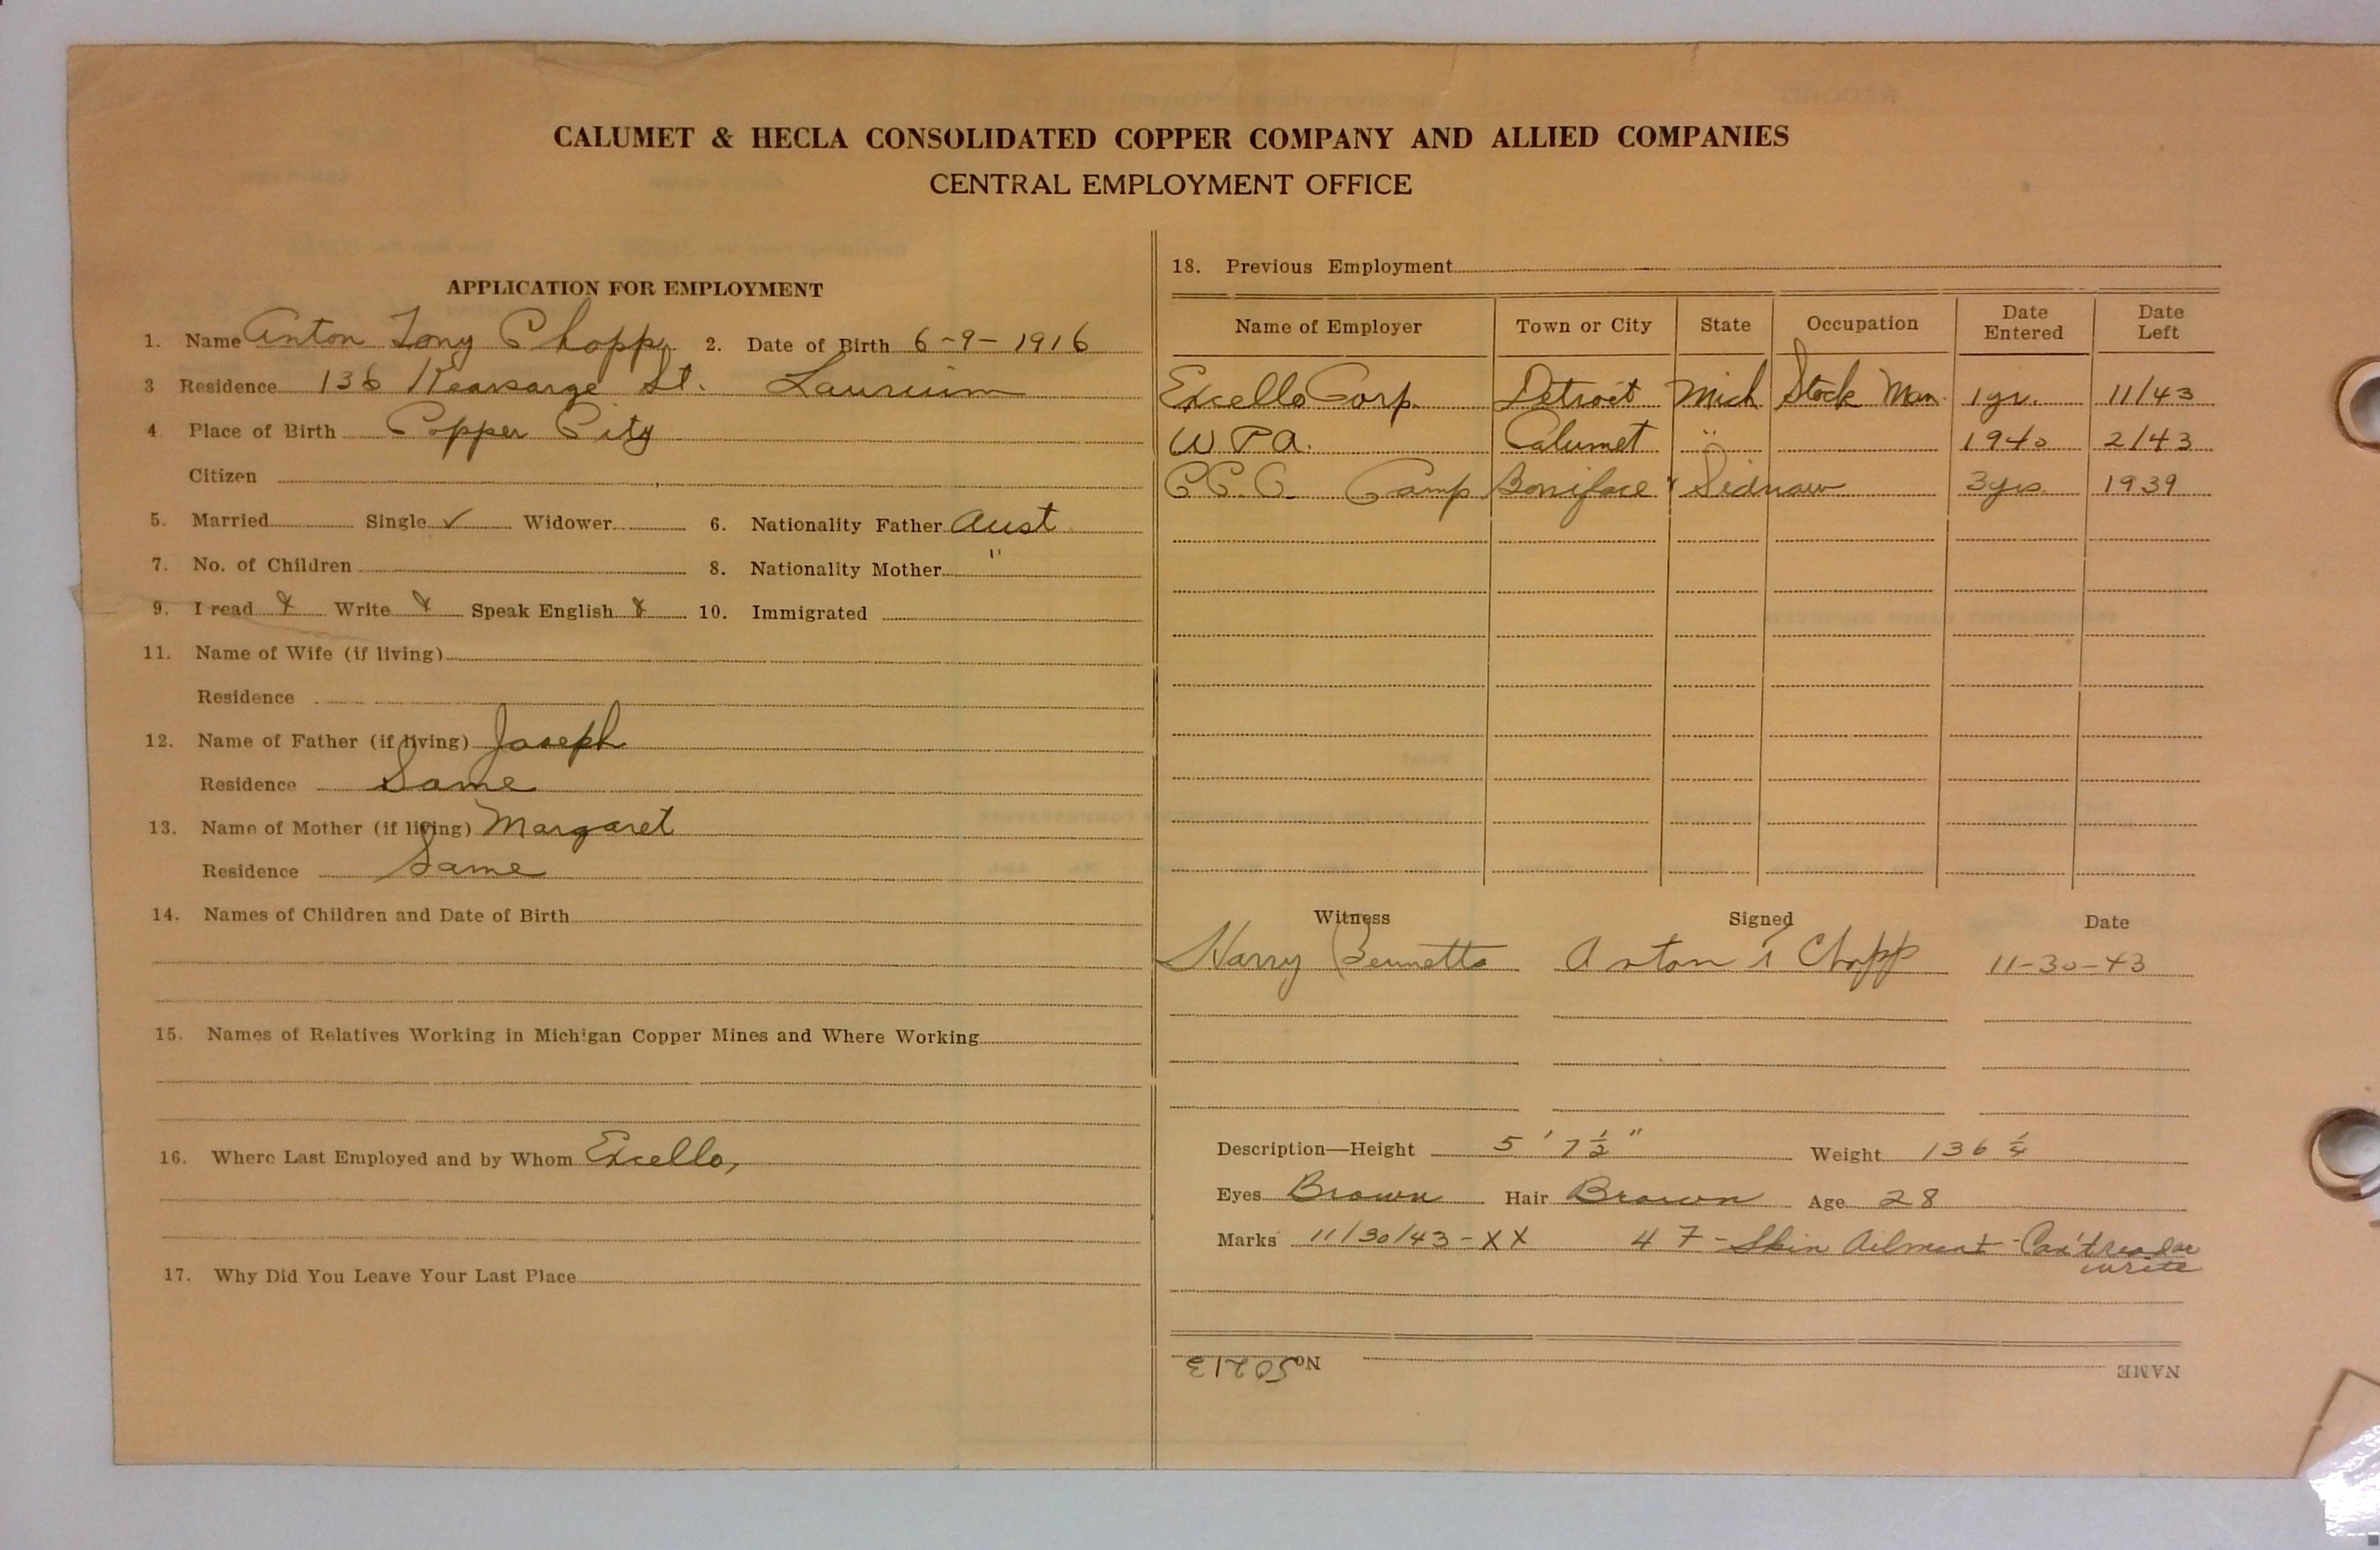 CALUMET & HECLA CONSOLIDATED COPPER COMPANY AND ALLIED COMPANIES
CENTRAL EMPLOYMENT OFFICE
APPLICATION FOR EMPLOYMENT
1. Name Anton Tony Chopp 2. Date of Birth 6-9-1916
3 Residence 136 Kearsarge St. Laurium
4. Place of Birth Copper City
Citizen
5. Married Single ✓ Widower 6. Nationality Father Aust
7. No. of Children 8. Nationality Mother "
9. I read X Write X Speak English X 10. Immigrated
11. Name of Wife (if living)
Residence
12. Name of Father (if living) Joseph
Residence Same
13. Name of Mother (if living) Margaret
Residence Same
14. Names of Children and Date of Birth
15. Names of Relatives Working in Michigan Copper Mines and Where Working
16. Where Last Employed and by Whom Excello,
17. Why Did You Leave Your Last Place
18. Previous Employment
Name of Employer Town or City State Occupation Date Entered Date Left
Excello Corp. Detroit Mich Stock Man 1 yr. 11/43
W P A. Calumet " 1940 2/43
C.C.C. Camp Boniface & Sidnaw 3 yrs. 1939
Witness Signed Date
Harry Bennetts Anton T Chopp 11-30-43
Description—Height 5' 7½" Weight 136 ¼
Eyes Brown Hair Brown Age 28
Marks 11/30/43 - XX 47 - Skin Ailment - Can't read or
write
No. 50213 NAME